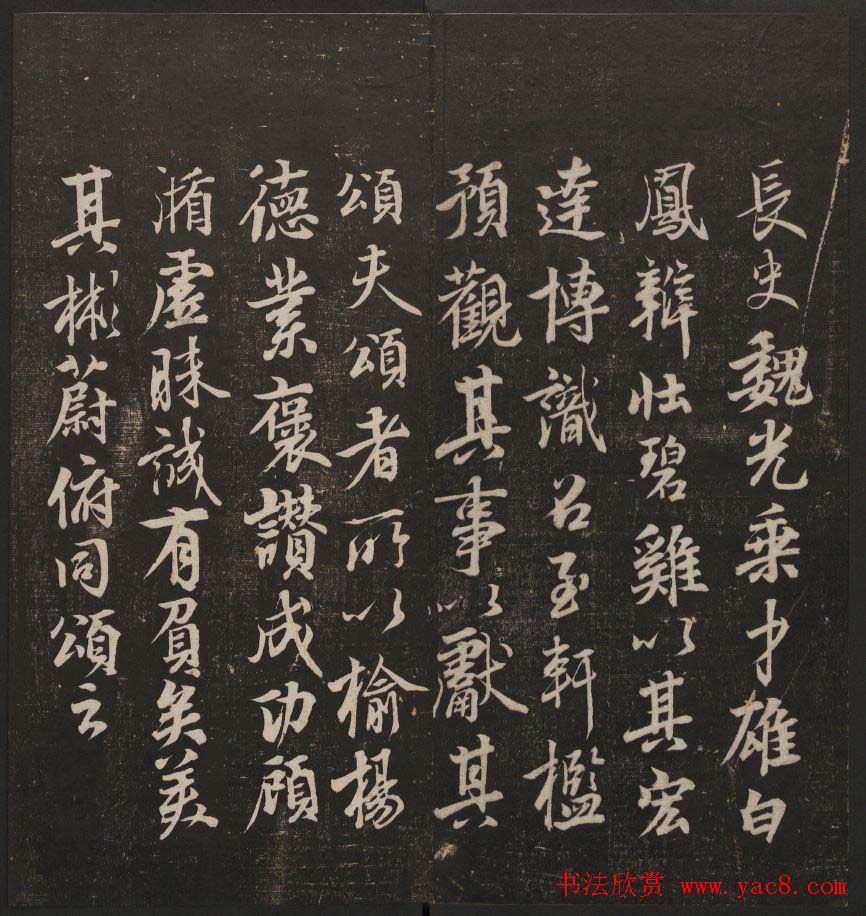 長史魏光乘才雄白
鳳辯壯碧雞以其宏
達博識召至軒檻
預觀其事以獻其
頌夫頌者所以揄揚
德業褒讚成功顧
循虛昧誠有負矣美
其彬蔚俯同頌云
书法欣赏 www.yac8.com